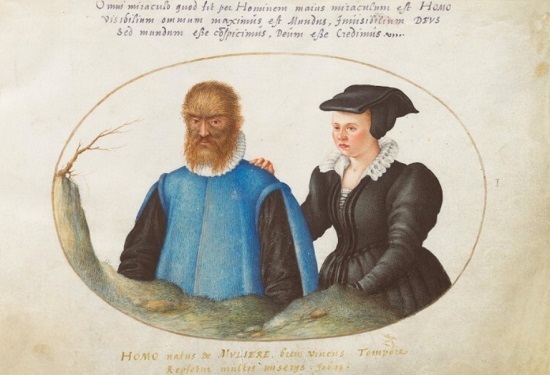 Omni miraculo quod fit per Hominem maius miraculum est HOMO
Visibilium omnium maximus est Mundus, Inuisibilium DEVS
Sed mundum eße cõspicimus, Deum eße Credimus
HOMO natus de MVLIERE, breui viuens Tempore
Repletur multis miserijs.